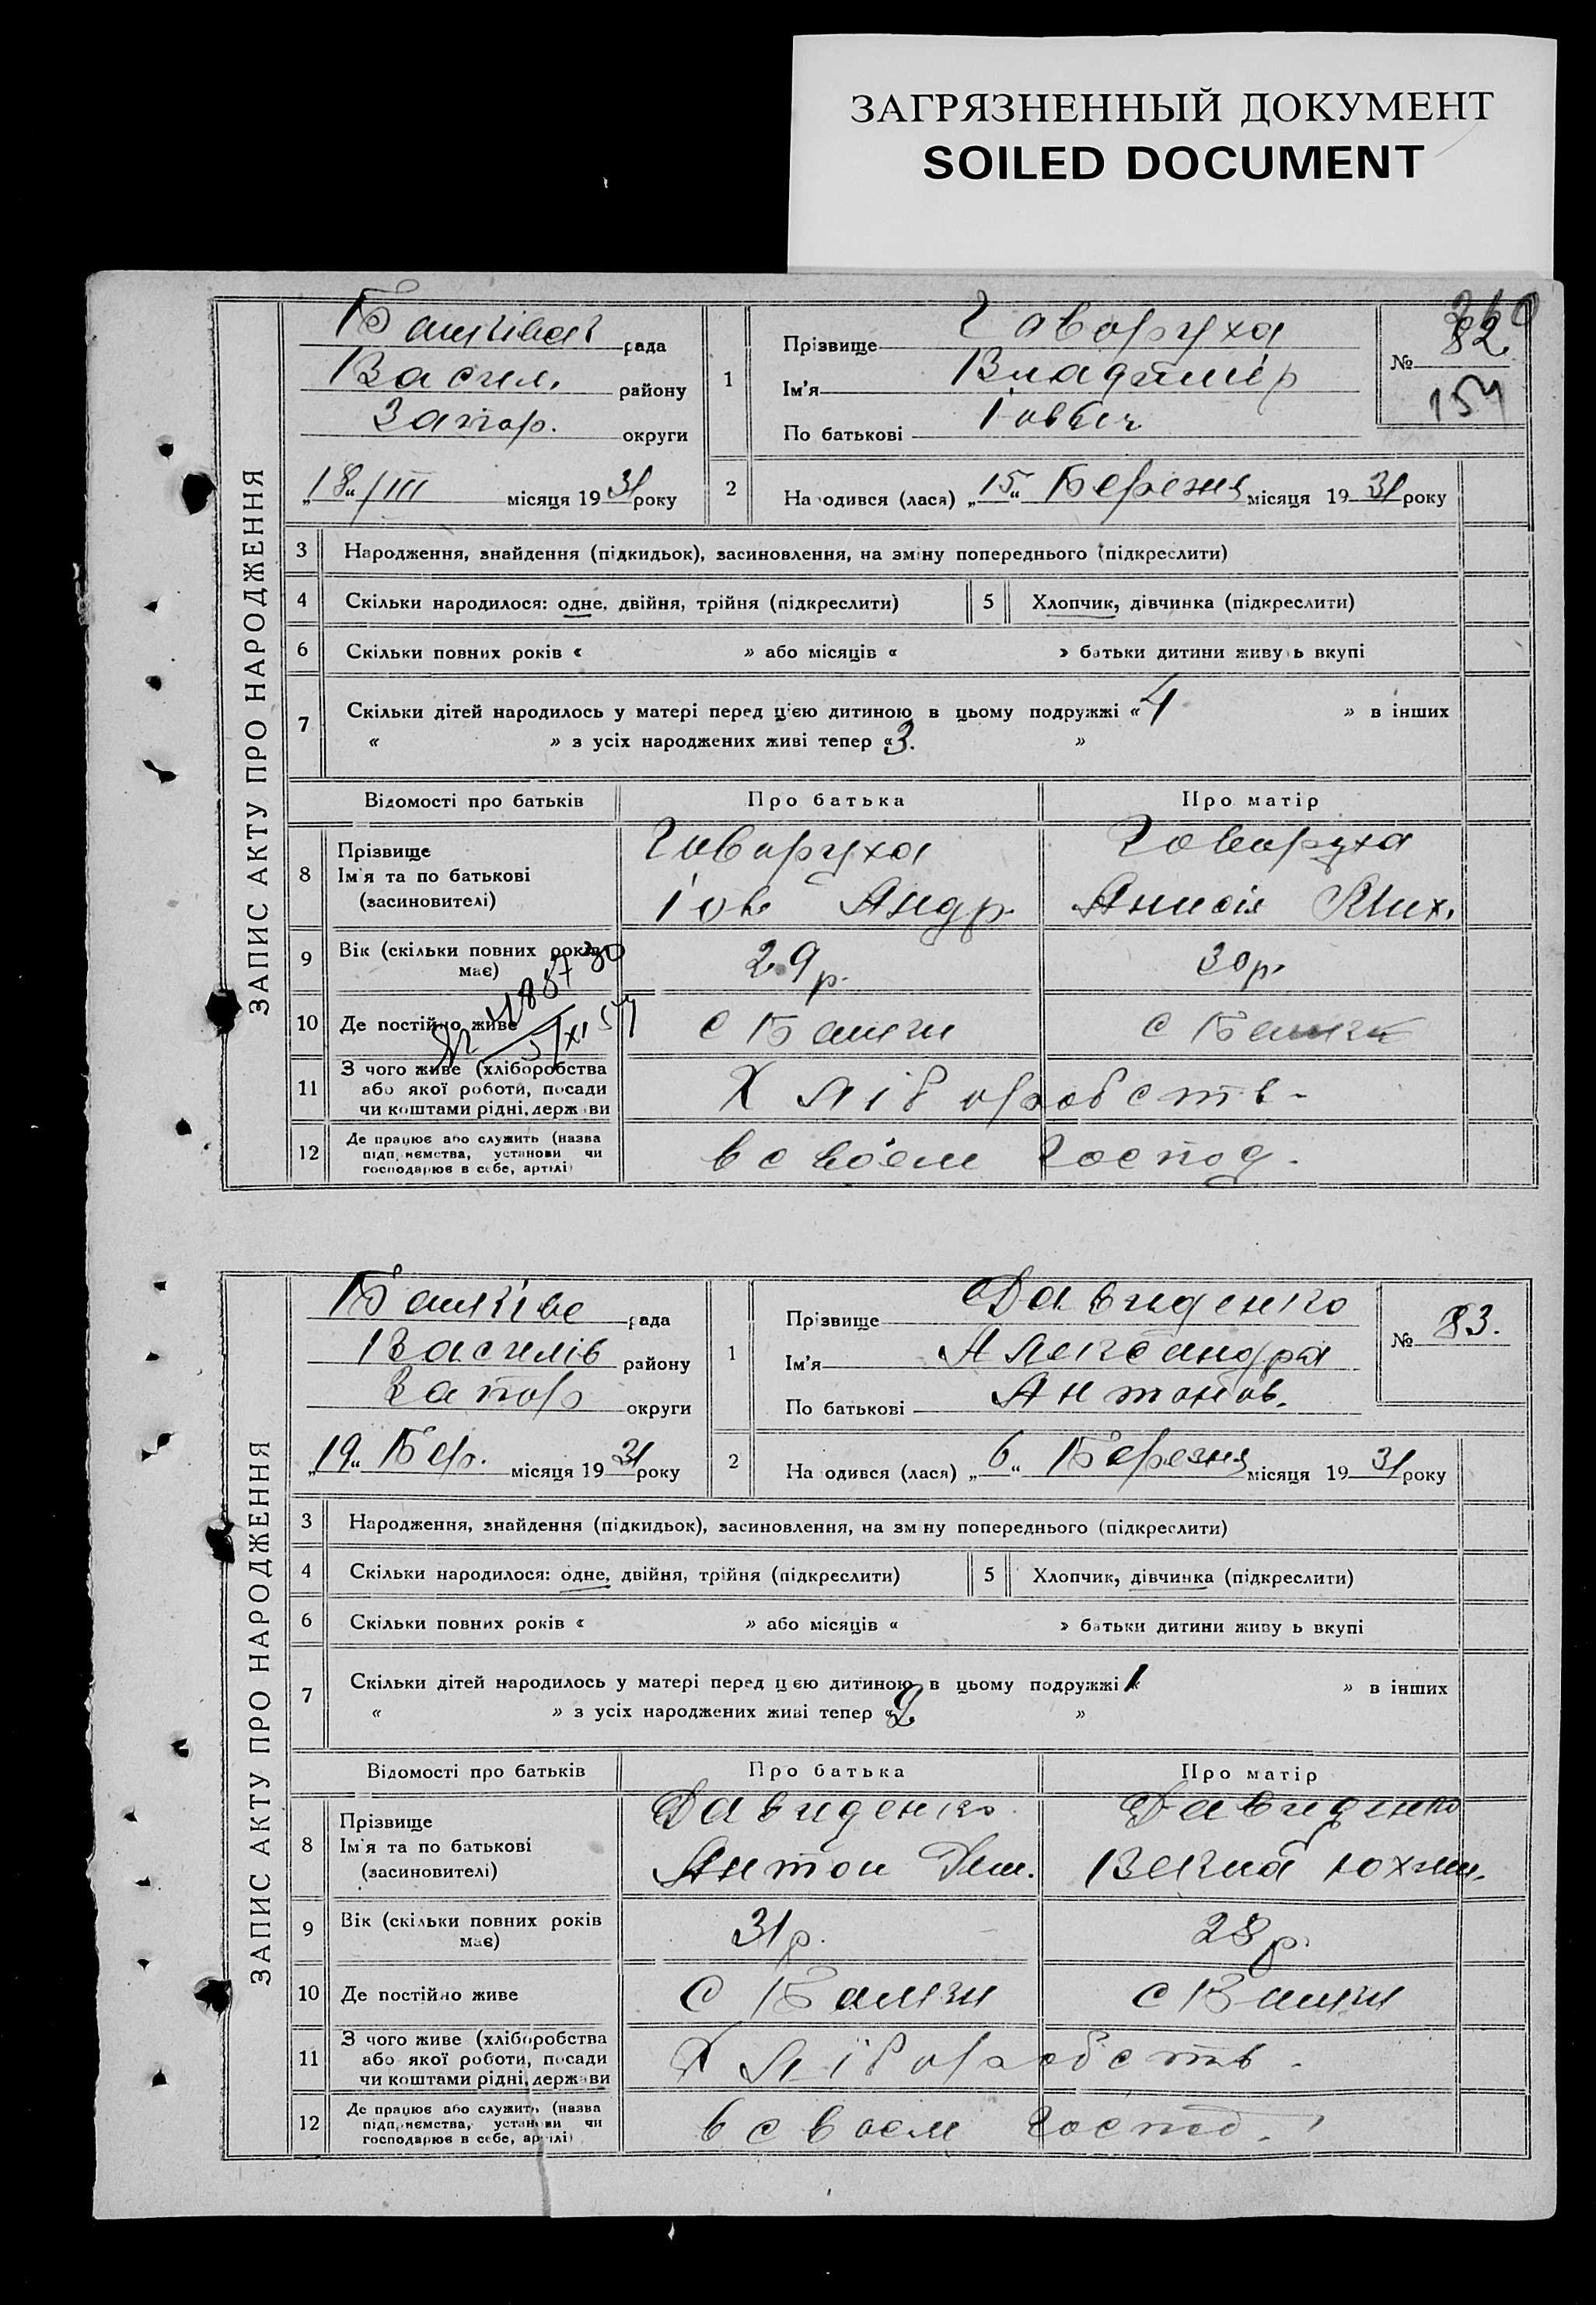 ЗАГРЯЗНЕННЫЙ ДОКУМЕНТ
SOILED DOCUMENT
ЗАПИС АКТУ ПРО НАРОДЖЕННЯ
рада
Васил. району
Запор. округи
„18“ /III місяця 1931 року
1 Прізвище Говоруха
Ім'я Владимір
По батькові Іович
№ 82
154
2 Народився (лася) „15“ Березня місяця 1931 року
3 Народження, знайдення (підкидьок), засиновлення, на зміну попереднього (підкреслити)
4 Скільки народилося: одне, двійня, трійня (підкреслити)
5 Хлопчик, дівчинка (підкреслити)
6 Скільки повних років « » або місяців « » батьки дитини живуть вкупі
7 Скільки дітей народилось у матері перед цією дитиною в цьому подружжі «4 » в інших
« » з усіх народжених живі тепер «3. »
Відомості про батьків Про батька Про матір
8 Прізвище Говоруха Говоруха
Ім'я та по батькові
(засиновителі) Іов Андр. Анисія Мих.
9 Вік (скільки повних років має) 29 р. 30 р.
10 Де постійно живе с
5/XI 57
11 З чого живе (хліборобства
або якої роботи, посади
чи коштами рідні, держави
Хліборобств-
12 Де працює або служить (назва
підприємства, установи чи
господарює в себе, артілі)
в своем господ.
ЗАПИС АКТУ ПРО НАРОДЖЕННЯ
рада
Василів району
Запор округи
„19“ Бер. місяця 1931 року
1 Прізвище Давиденко
Ім'я Александра
По батькові Антонов.
№ 83.
2 Народився (лася) „6“ Березня місяця 1931 року
3 Народження, знайдення (підкидьок), засиновлення, на зміну попереднього (підкреслити)
4 Скільки народилося: одне, двійня, трійня (підкреслити)
5 Хлопчик, дівчинка (підкреслити)
6 Скільки повних років « » або місяців « » батьки дитини живуть вкупі
7 Скільки дітей народилось у матері перед цією дитиною в цьому подружжі «1 » в інших
« » з усіх народжених живі тепер «2 »
Відомості про батьків Про батька Про матір
8 Прізвище Давиденко Давиденко
Ім'я та по батькові
(засиновителі) Антон Юхим.
9 Вік (скільки повних років має) 31 р. 28 р.
10 Де постійно живе с с
11 З чого живе (хліборобства
або якої роботи, посади
чи коштами рідні, держави
Хліборобств.
12 Де працює або служить (назва
підприємства, установи чи
господарює в себе, артілі)
в своем господ.